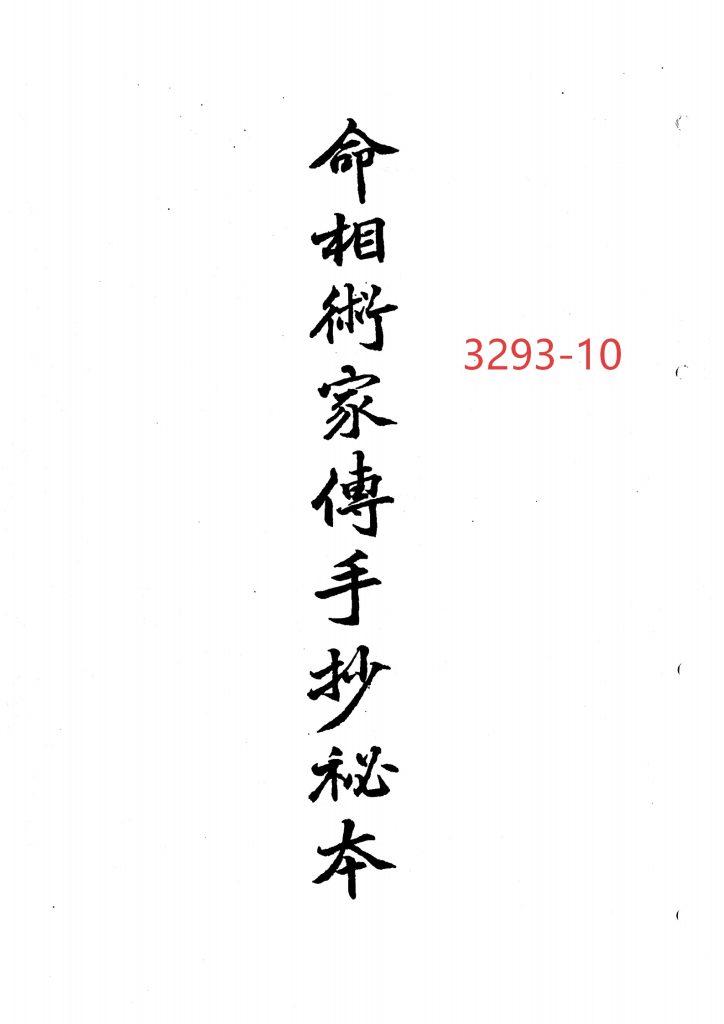 命相術家傳手抄祕本
3293-10